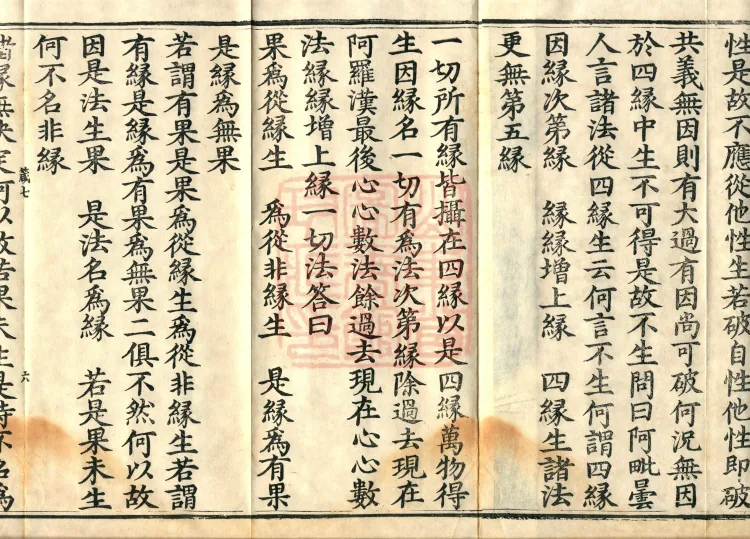 性是故不應從他性生若破自性他性即破
共義無因則有大過有因尚可破何況無因
於四緣中生不可得是故不生問曰阿毗曇
人言諸法從四緣生云何言不生何謂四緣
因緣次第緣 緣緣增上緣 四緣生諸法
更無第五緣
一切所有緣皆攝在四緣以是四緣萬物得
生因緣名一切有為法次第緣除過去現在
阿羅漢最後心心數法餘過去現在心心數
法緣緣增上緣一切法答曰
果為從緣生 為從非緣生 是緣為有果
是緣為無果
若謂有果是果為從緣生為從非緣生若謂
有緣是緣為有果為無果二俱不然何以故
因是法生果 是法名為緣 若是果未生
何不名非緣
藏七 六
諸緣無決定何以故若果未生是時不名為